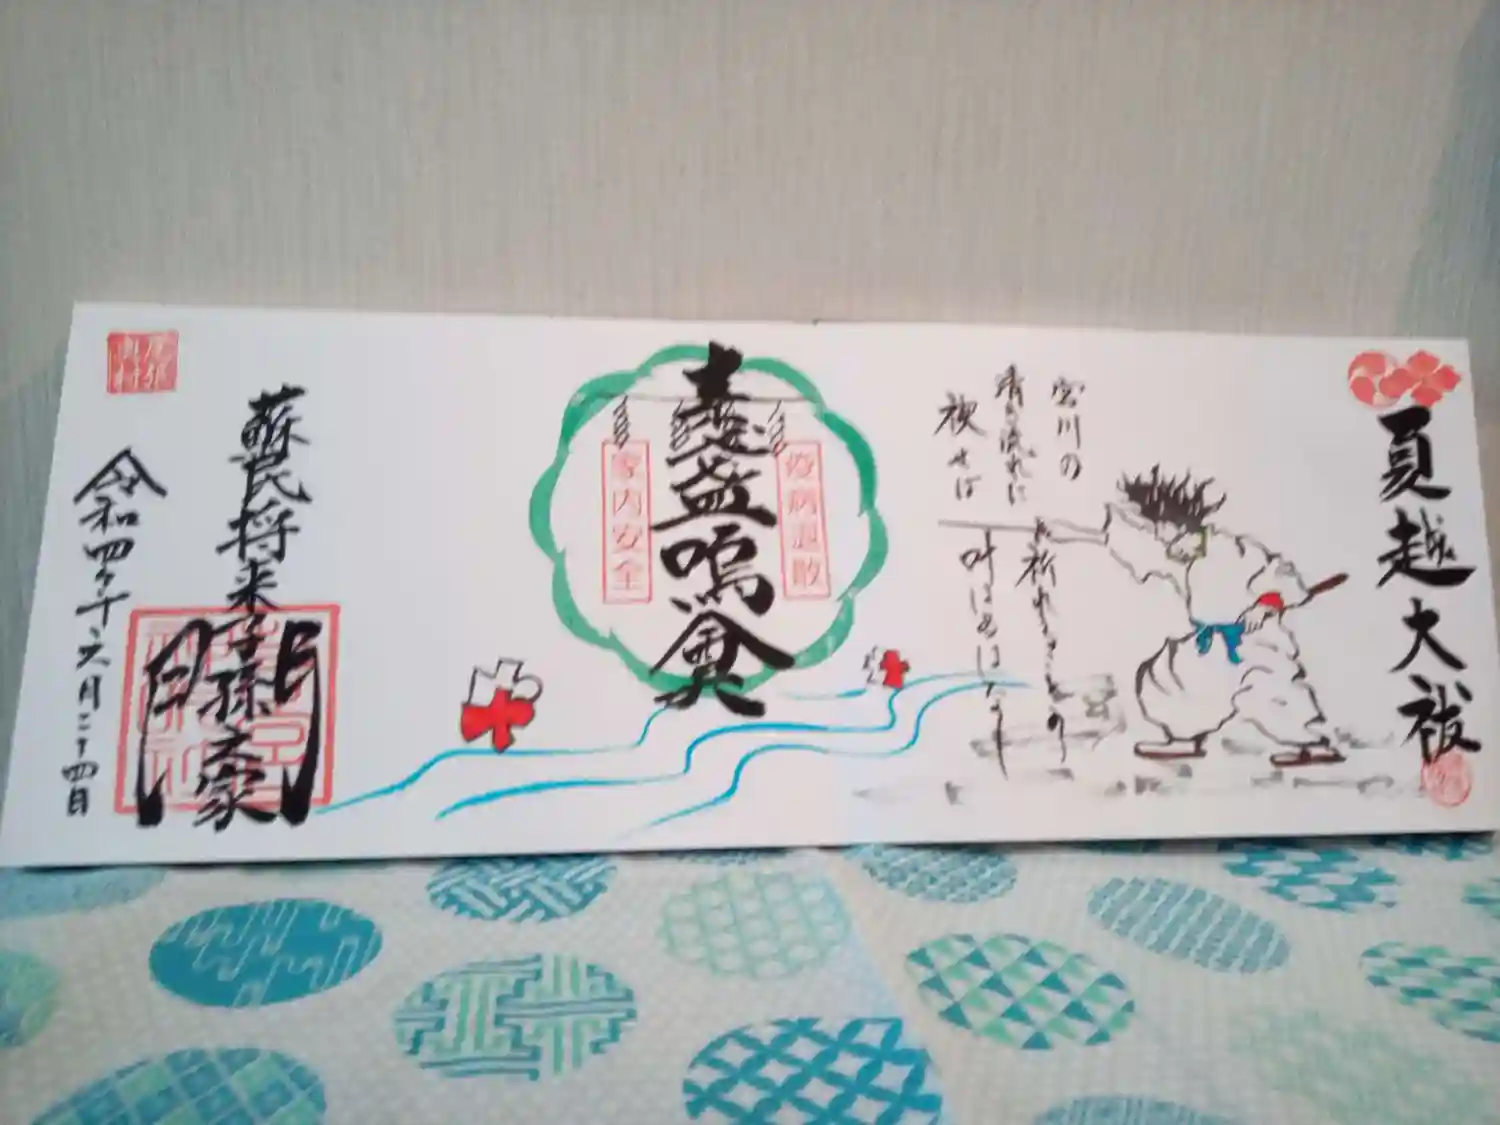 夏越大祓
宮川の
清き流れに
禊せば
祈れることの
叶はぬはなし
疫病退散
素盞嗚尊
家内安全
蘇民将来子孫之家門
令和四年六月二十四日